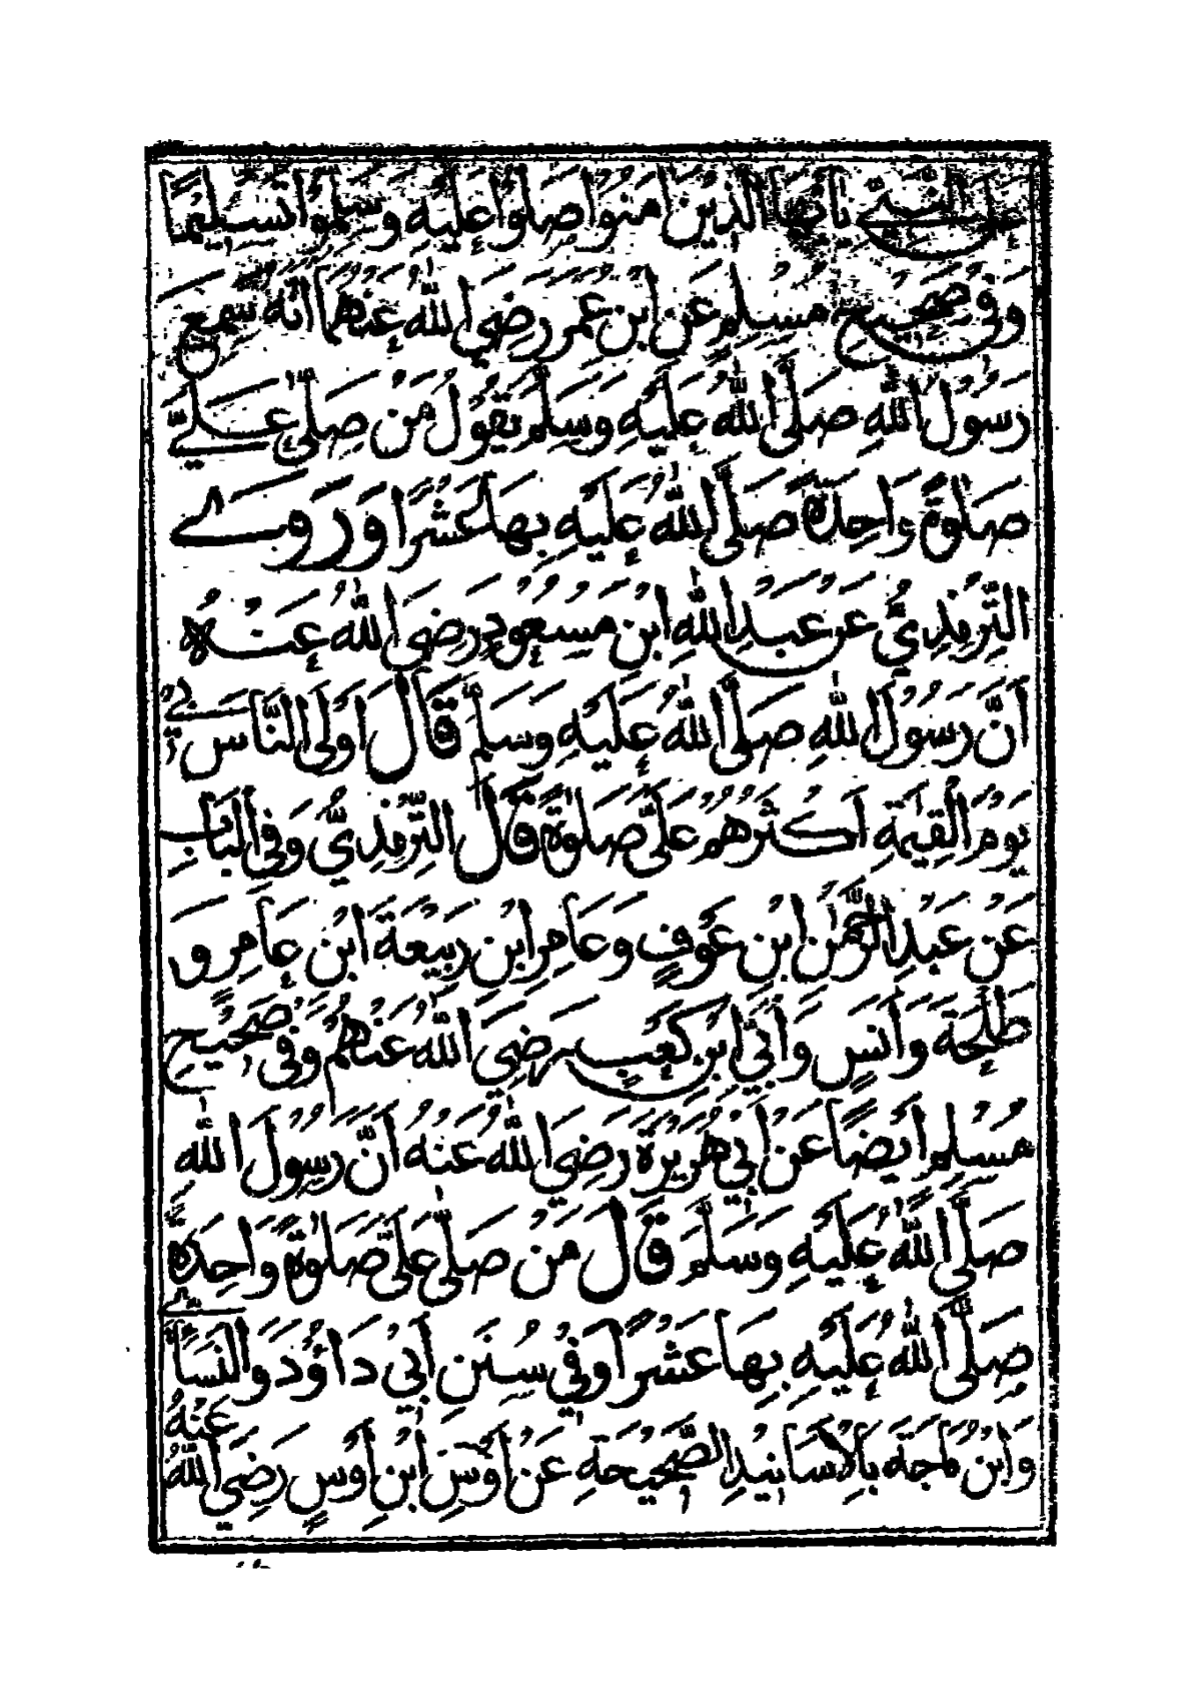 عَلَى النَّبِيِّ يَا أَيُّهَا الَّذِينَ آمَنُوا صَلُّوا عَلَيْهِ وَسَلِّمُوا تَسْلِيمًا
وَفِي صَحِيحِ مُسْلِمٍ عَنِ ابْنِ عُمَرَ رَضِيَ اللهُ عَنْهُمَا أَنَّهُ سَمِعَ
رَسُولَ اللهِ صَلَّى اللهُ عَلَيْهِ وَسَلَّمَ يَقُولُ مَنْ صَلَّى عَلَيَّ
صَلٰوةً وَاحِدَةً صَلَّى اللهُ عَلَيْهِ بِهَا عَشْرًا وَرَوَى
التِّرْمِذِيُّ عَنْ عَبْدِ اللهِ ابْنِ مَسْعُودٍ رَضِيَ اللهُ عَنْهُ
أَنَّ رَسُولَ اللهِ صَلَّى اللهُ عَلَيْهِ وَسَلَّمَ قَالَ أَوْلَى النَّاسِ بِي
يَوْمَ الْقِيٰمَةِ أَكْثَرُهُمْ عَلَيَّ صَلٰوةً قَالَ التِّرْمِذِيُّ وَفِي الْبَابِ
عَنْ عَبْدِ الرَّحْمٰنِ ابْنِ عَوْفٍ وَعَامِرِ ابْنِ رَبِيعَةَ ابْنِ عَامِرٍ وَ
طَلْحَةَ وَأَنَسٍ وَأُبَيِّ ابْنِ كَعْبٍ رَضِيَ اللهُ عَنْهُمْ وَفِي صَحِيحِ
مُسْلِمٍ أَيْضًا عَنْ أَبِي هُرَيْرَةَ رَضِيَ اللهُ عَنْهُ أَنَّ رَسُولَ اللهِ
صَلَّى اللهُ عَلَيْهِ وَسَلَّمَ قَالَ مَنْ صَلَّى عَلَيَّ صَلٰوةً وَاحِدَةً
صَلَّى اللهُ عَلَيْهِ بِهَا عَشْرًا وَفِي سُنَنِ أَبِي دَاؤُدَ وَالنَّسَائِي
وَابْنِ مَاجَةَ بِالْأَسَانِيدِ الصَّحِيحَةِ عَنْ أَوْسِ ابْنِ أَوْسٍ رَضِيَ اللهُ عَنْهُ